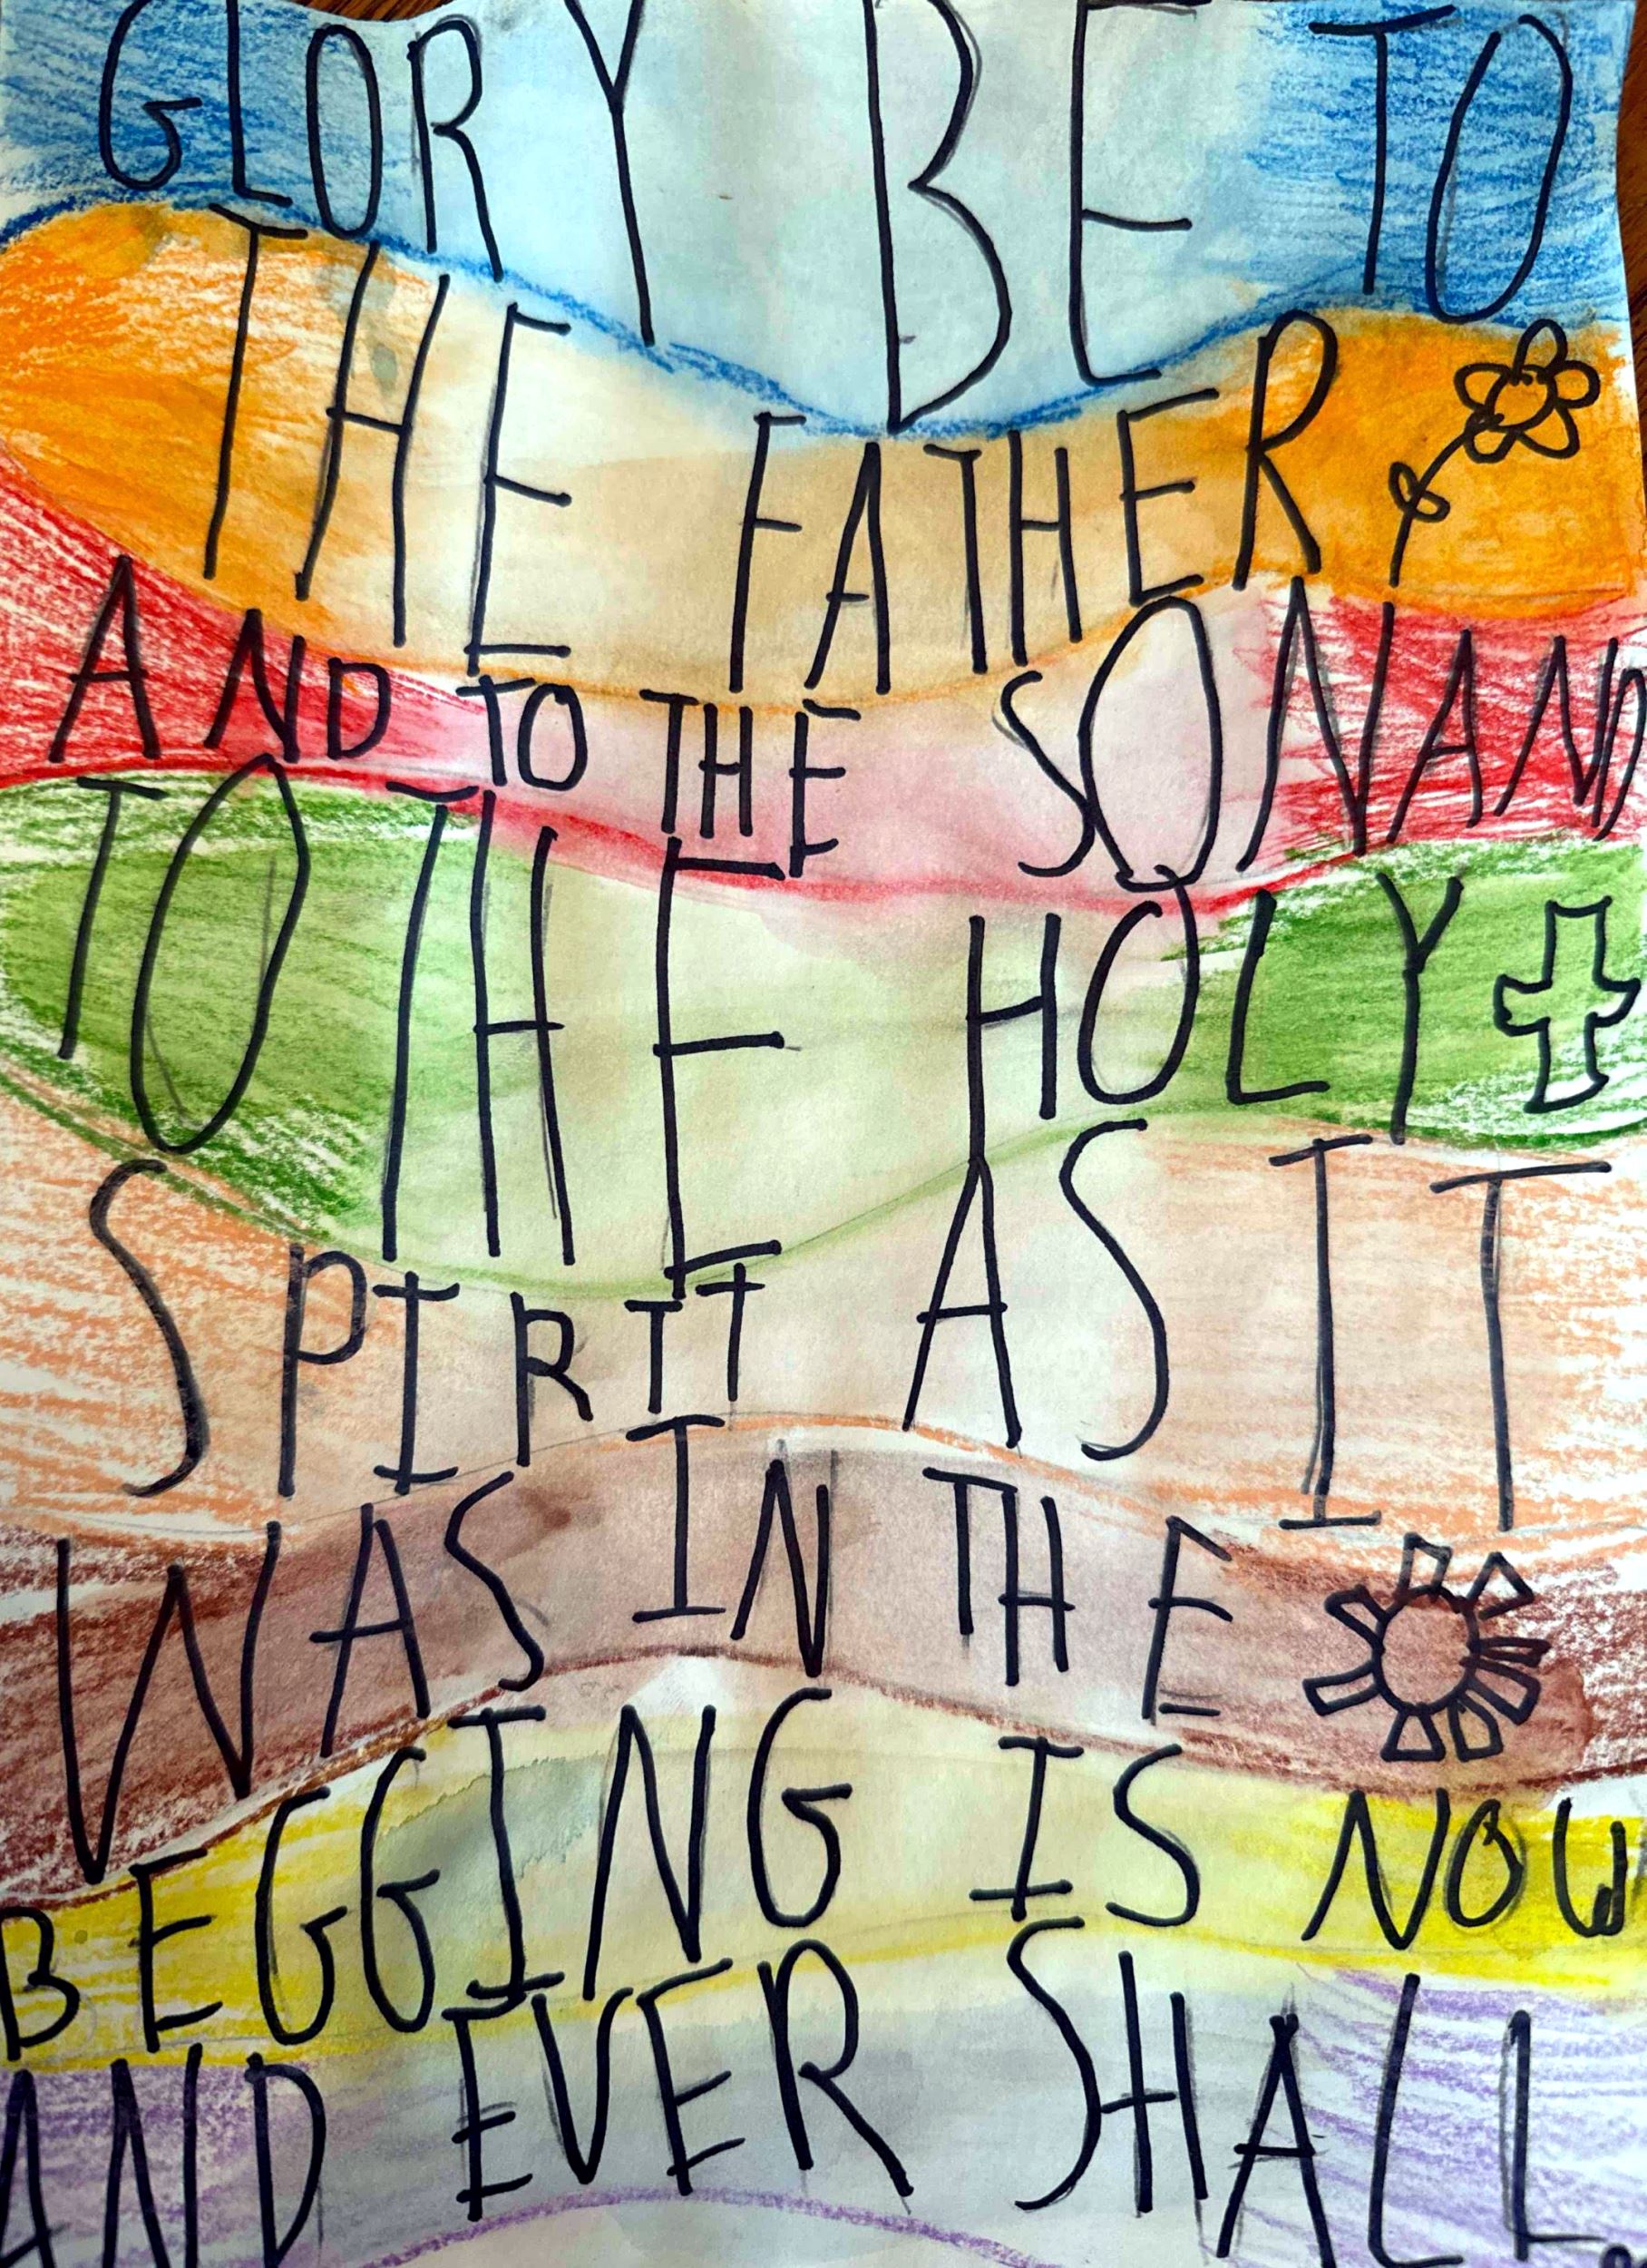 GLORY BE TO
THE FATHER
AND TO THE SON AND
TO THE HOLY
SPIRIT AS IT
WAS IN THE
BEGGING IS NOW
AND EVER SHALL